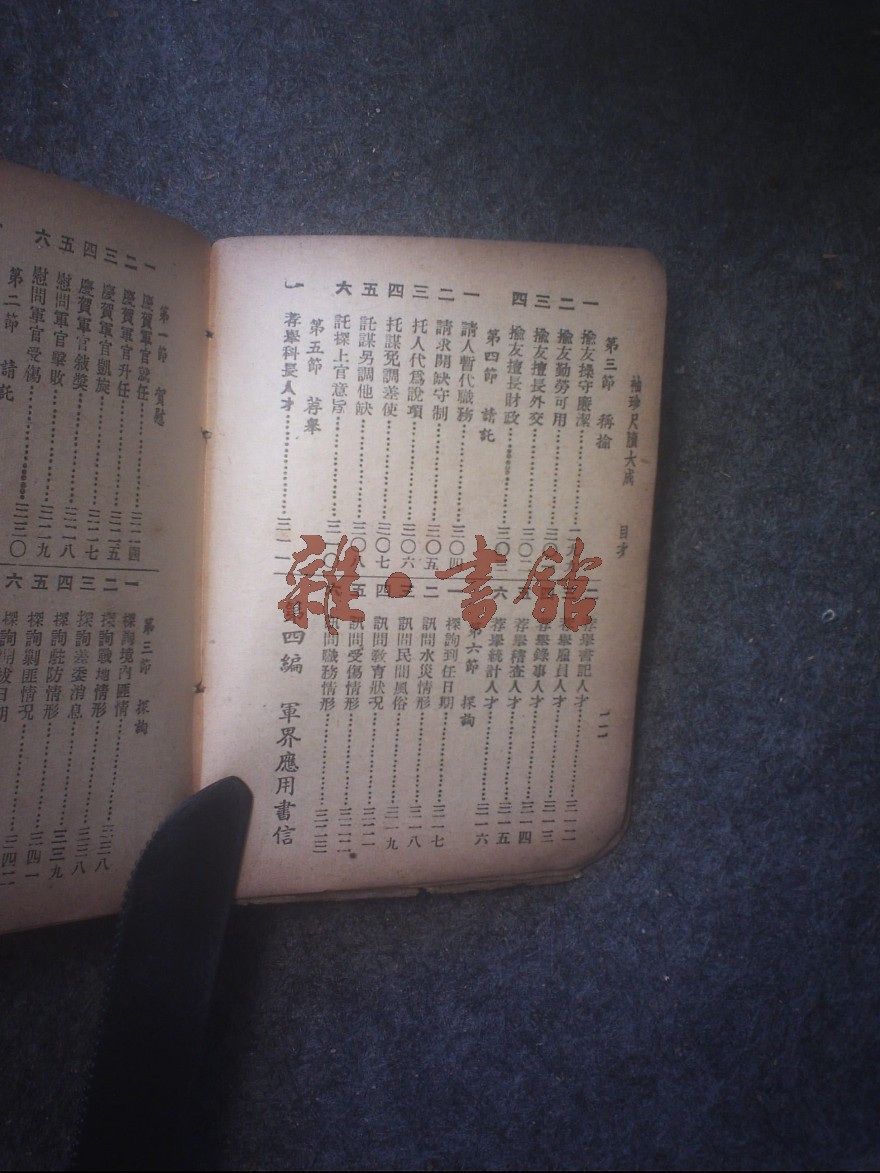 袖珍尺牘大成 目次
一一
第三節 稱揄
一 揄友操守廉潔……二九九
二 揄友勤勞可用……三〇一
三 揄友擅長外交……三〇二
四 揄友擅長財政……三〇三
第四節 請託
一 請人暫代職務……三〇四
二 請求開缺守制……三〇五
三 托人代爲說項……三〇六
四 托謀免調差使……三〇七
五 託謀另調他缺……三〇八
六 託探上官意旨……三一〇
第五節 荐舉
一 荐舉科長人才……三一一
二 荐舉書記人才……三一二
三 荐舉雇員人才……三一三
四 荐舉錄事人才……三一四
五 荐舉稽查人才……三一五
六 荐舉統計人才……三一六
第六節 探詢
一 探詢到任日期……三一七
二 訊問水災情形……三一八
三 訊問民間風俗……三一九
四 訊問教育狀况……三二一
五 訊問受傷情形……三二二
六 訊問職務情形……三二三
第四編 軍界應用書信
第一節 賀慰
一 慶賀軍官就任……三二四
二 慶賀軍官升任……三二五
三 慶賀軍官凱旋……三二七
四 慶賀軍官敘獎……三二八
五 慰問軍官擊敗……三二九
六 慰問軍官受傷……三三〇
第二節 請託
第三節 探詢
一 探詢境內匪情……三三八
二 探詢戰地情形……三三八
三 探詢差委消息……三三九
四 探詢駐防情形……三四一
五 探詢剿匪情况……三四二
六 探詢開拔日期
雜·書館